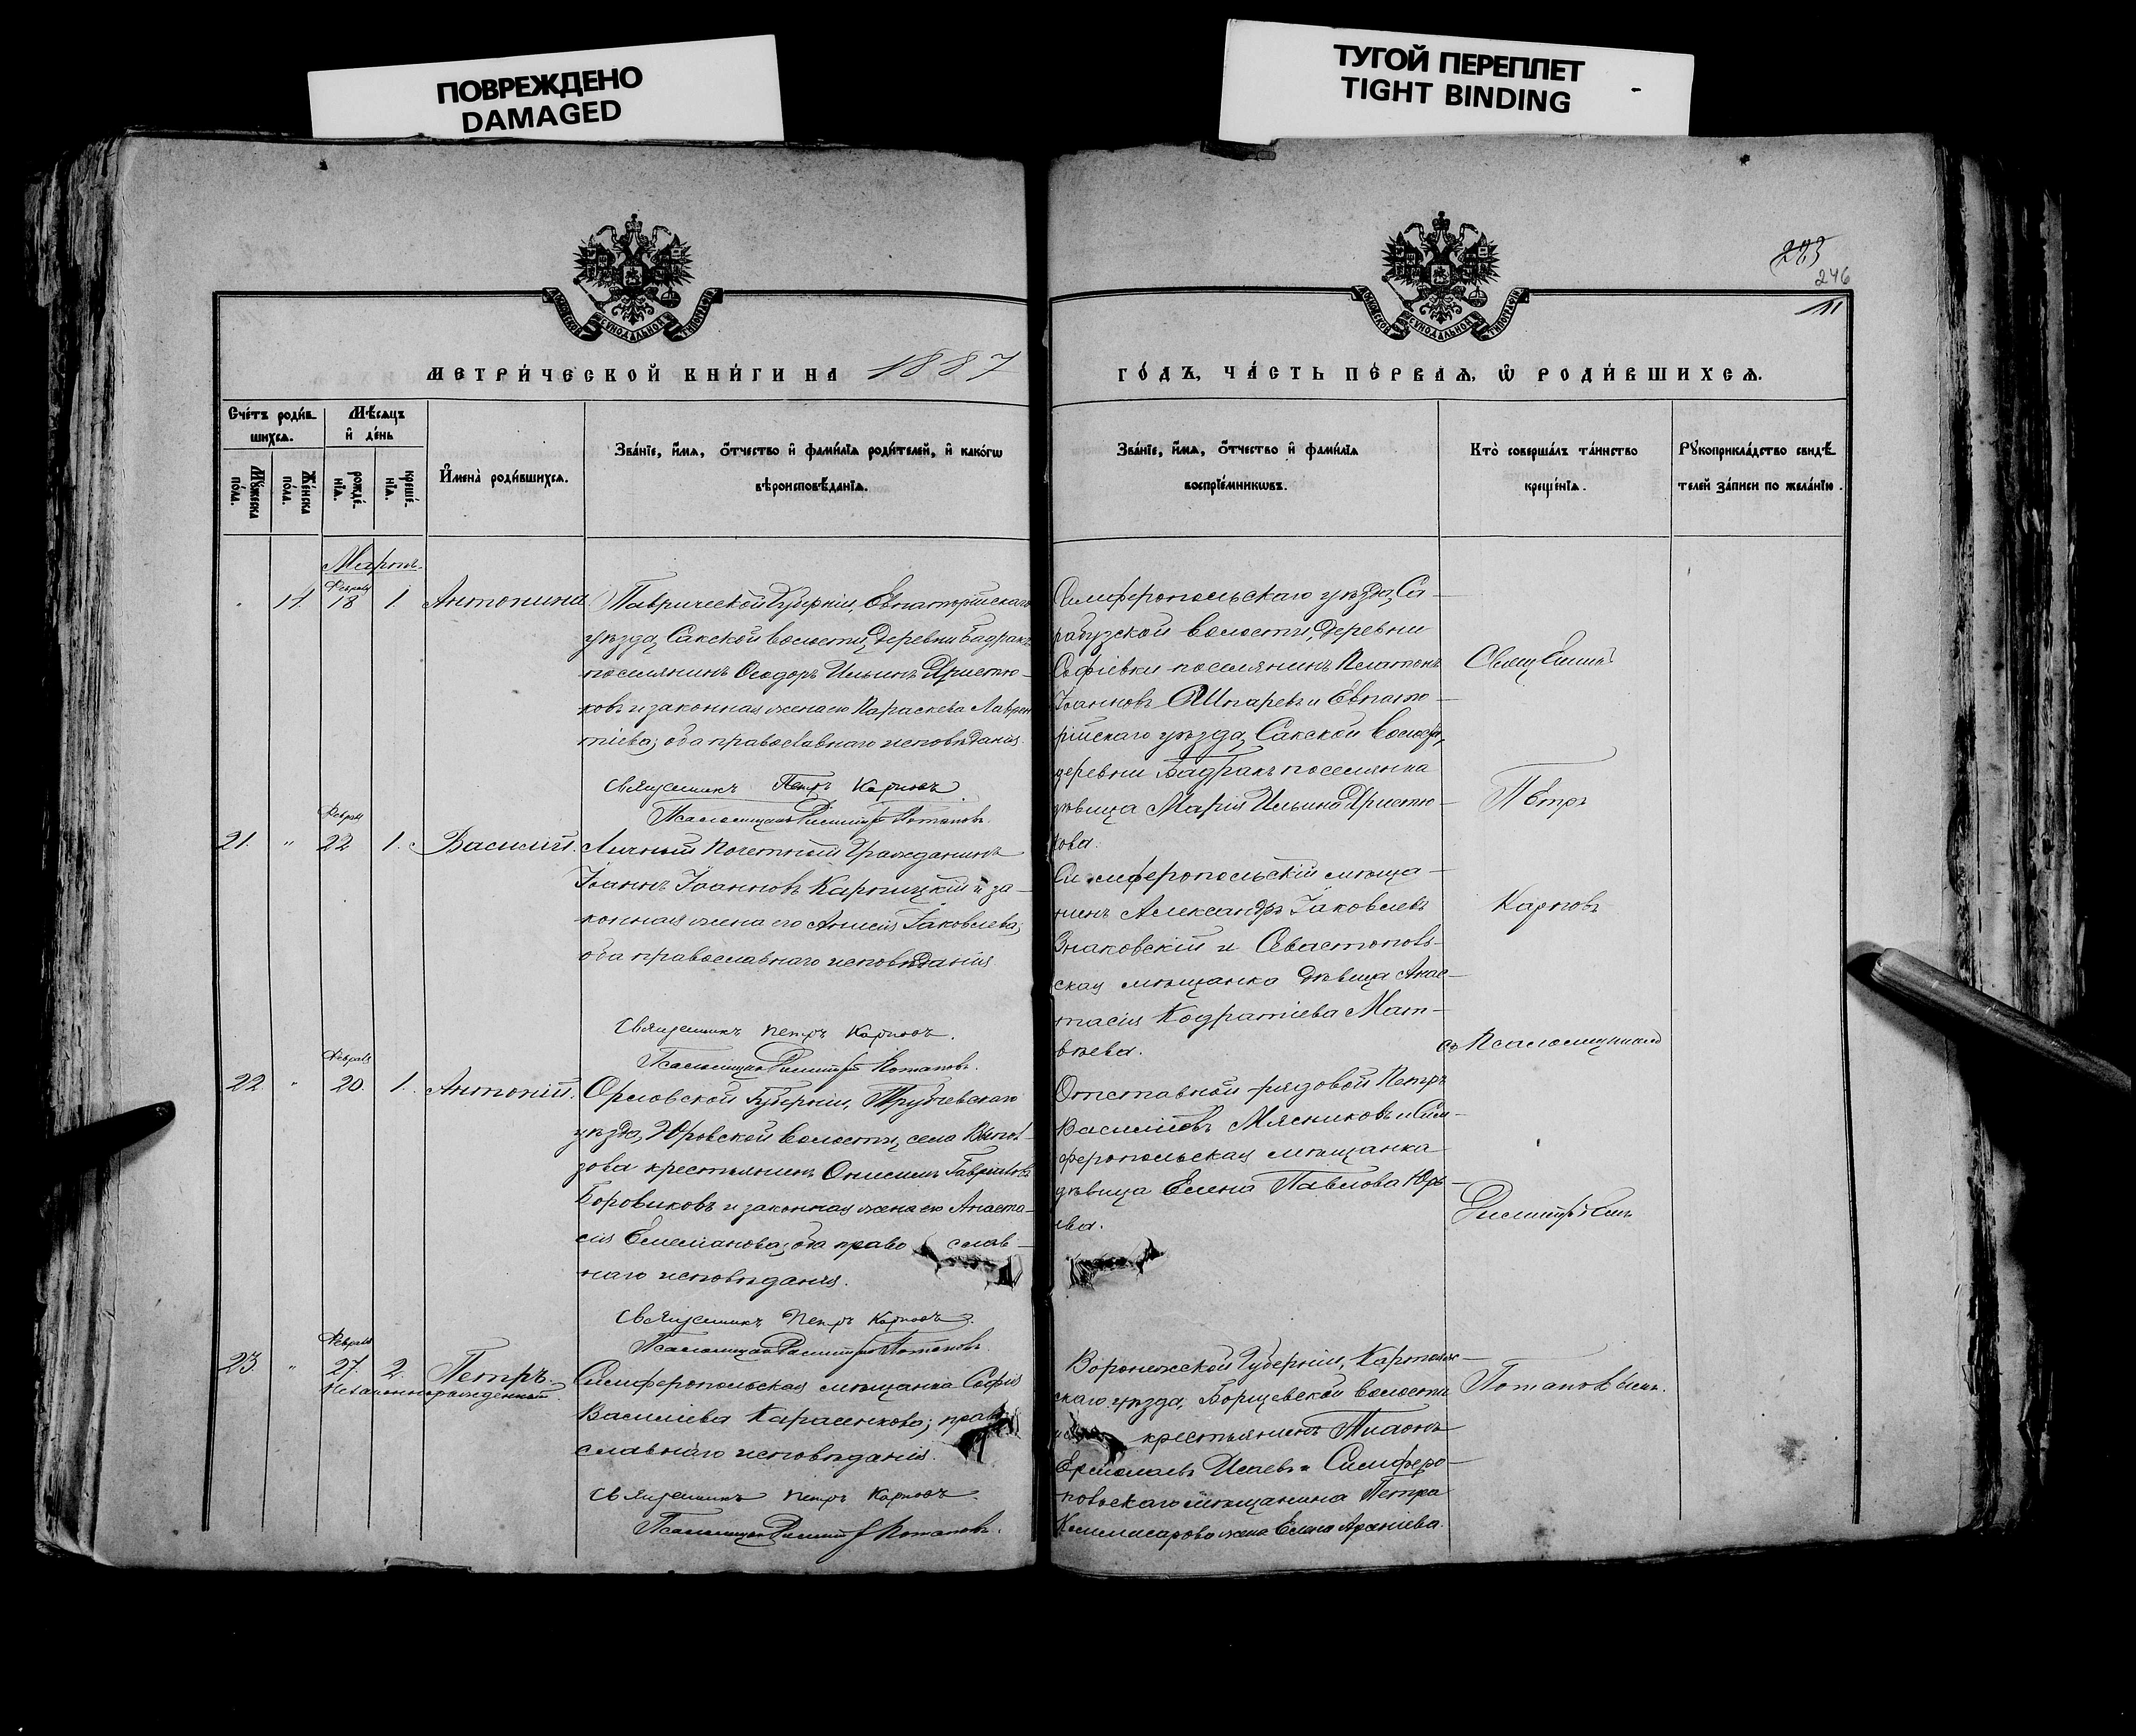 ПОВРЕЖДЕНО
DAMAGED
ТУГОЙ ПЕРЕПЛЕТ
TIGHT BINDING
243
246
11
МОСКОВСКОЙ СУНОДАЛЬНОЙ ТИПОГРАФІИ
МОСКОВСКОЙ СУНОДАЛЬНОЙ ТИПОГРАФІИ
МЕТРИ́ЧЕСКОЙ КНИ́ГИ НА 1887
ГО́ДЪ, ЧА́СТЬ ПЕ́РВАѦ, Ѡ҆ РОДИ́ВШИХСѦ.
Сче́тъ роди́в-
шихсѧ.
Мѣ́сѧцъ
и҆ де́нь
Мꙋ́жеска
по́ла.
Же́нска
по́ла.
рожде́-
нїѧ.
креще́-
нїѧ.
И҆мена̀ роди́вшихсѧ.
Зва́нїе, и҆́мѧ, ѻ҆́тчество и҆ фами́лїѧ роди́телей, и҆ како́гѡ
вѣроисповѣ́данїѧ.
Зва́нїе, и҆́мѧ, ѻ҆́тчество и҆ фами́лїѧ
воспрїе́мникѡвъ.
Кто̀ соверша́лъ та́инство
креще́нїѧ.
Рꙋкоприкла́дство свидѣ́-
телей за́писи по жела́нїю.
Мартъ.
Февраля
14. 18 1. Антонина
Таврической Губерніи, Евпаторійскаго
уѣзда, Сакской волости, деревни Бадракъ
поселянинъ Ѳеодоръ Ильинъ Христю-
ковъ и законная жена его Параскева Лаврен
тіева; оба православнаго исповѣданія.
Священникъ Петръ Карповъ
Псаломщикъ Димитрій Потаповъ.
Симферопольскаго уѣзда, Са-
рабузской волости, деревни
Софіевки поселянинъ Платонъ
Іоанновъ Шпаревъ и Евпато-
рійскаго уѣзда, Сакской волости,
деревни Бадракъ поселянка
дѣвица Марія Ильина Христю-
кова.
Февраля
21. " 22 1. Василій.
Личный Почетный Гражданинъ
Іоаннъ Іоанновъ Карпицкій и за-
конная жена его Анисія Іаковлева;
оба православнаго исповѣданія.
Священникъ Петръ Карповъ.
Псаломщикъ Димитрій Потаповъ.
Симферопольскій мѣща-
нинъ Александръ Іаковлевъ
Знаковскій и Севастополь-
ская мѣщанка дѣвица Анас-
тасія Кодратіева Мат-
вѣева.
Февраля
22. " 20. 1. Антоній.
Орловской Губерніи, Трубчевскаго
уѣзда, Юровской волости, села
крестьянинъ Онисимъ Гавриловъ
Боровиковъ и законная жена его Анаста-
сія Емеліанова; оба право слав-
наго исповѣданія.
Священникъ Петръ Карповъ.
Псаломщикъ Димитрій Потаповъ.
Отставной рядовой Петръ
Василіевъ Мясниковъ и Сим-
феропольская мѣщанка
дѣвица Елена Павлова Юрь-
ева.
Февраля
23. " 27. 2. Петръ.
Незаконнорожденный.
Симферопольская мѣщанка Софія
Василіева Карасенкова; право
славнаго исповѣданія.
Священникъ Петръ Карповъ.
Псаломщикъ Димитрій Потаповъ.
Воронежской Губерніи,
скаго уѣзда, Борщевской волости
крестьянинъ
Ермолаевъ Исаевъ и Симферо-
польскаго мѣщанина Петра
Коммисарова жена Елена
Священникъ
Петръ
Карповъ
съ Псаломщикомъ
Димитріемъ
Потаповымъ.